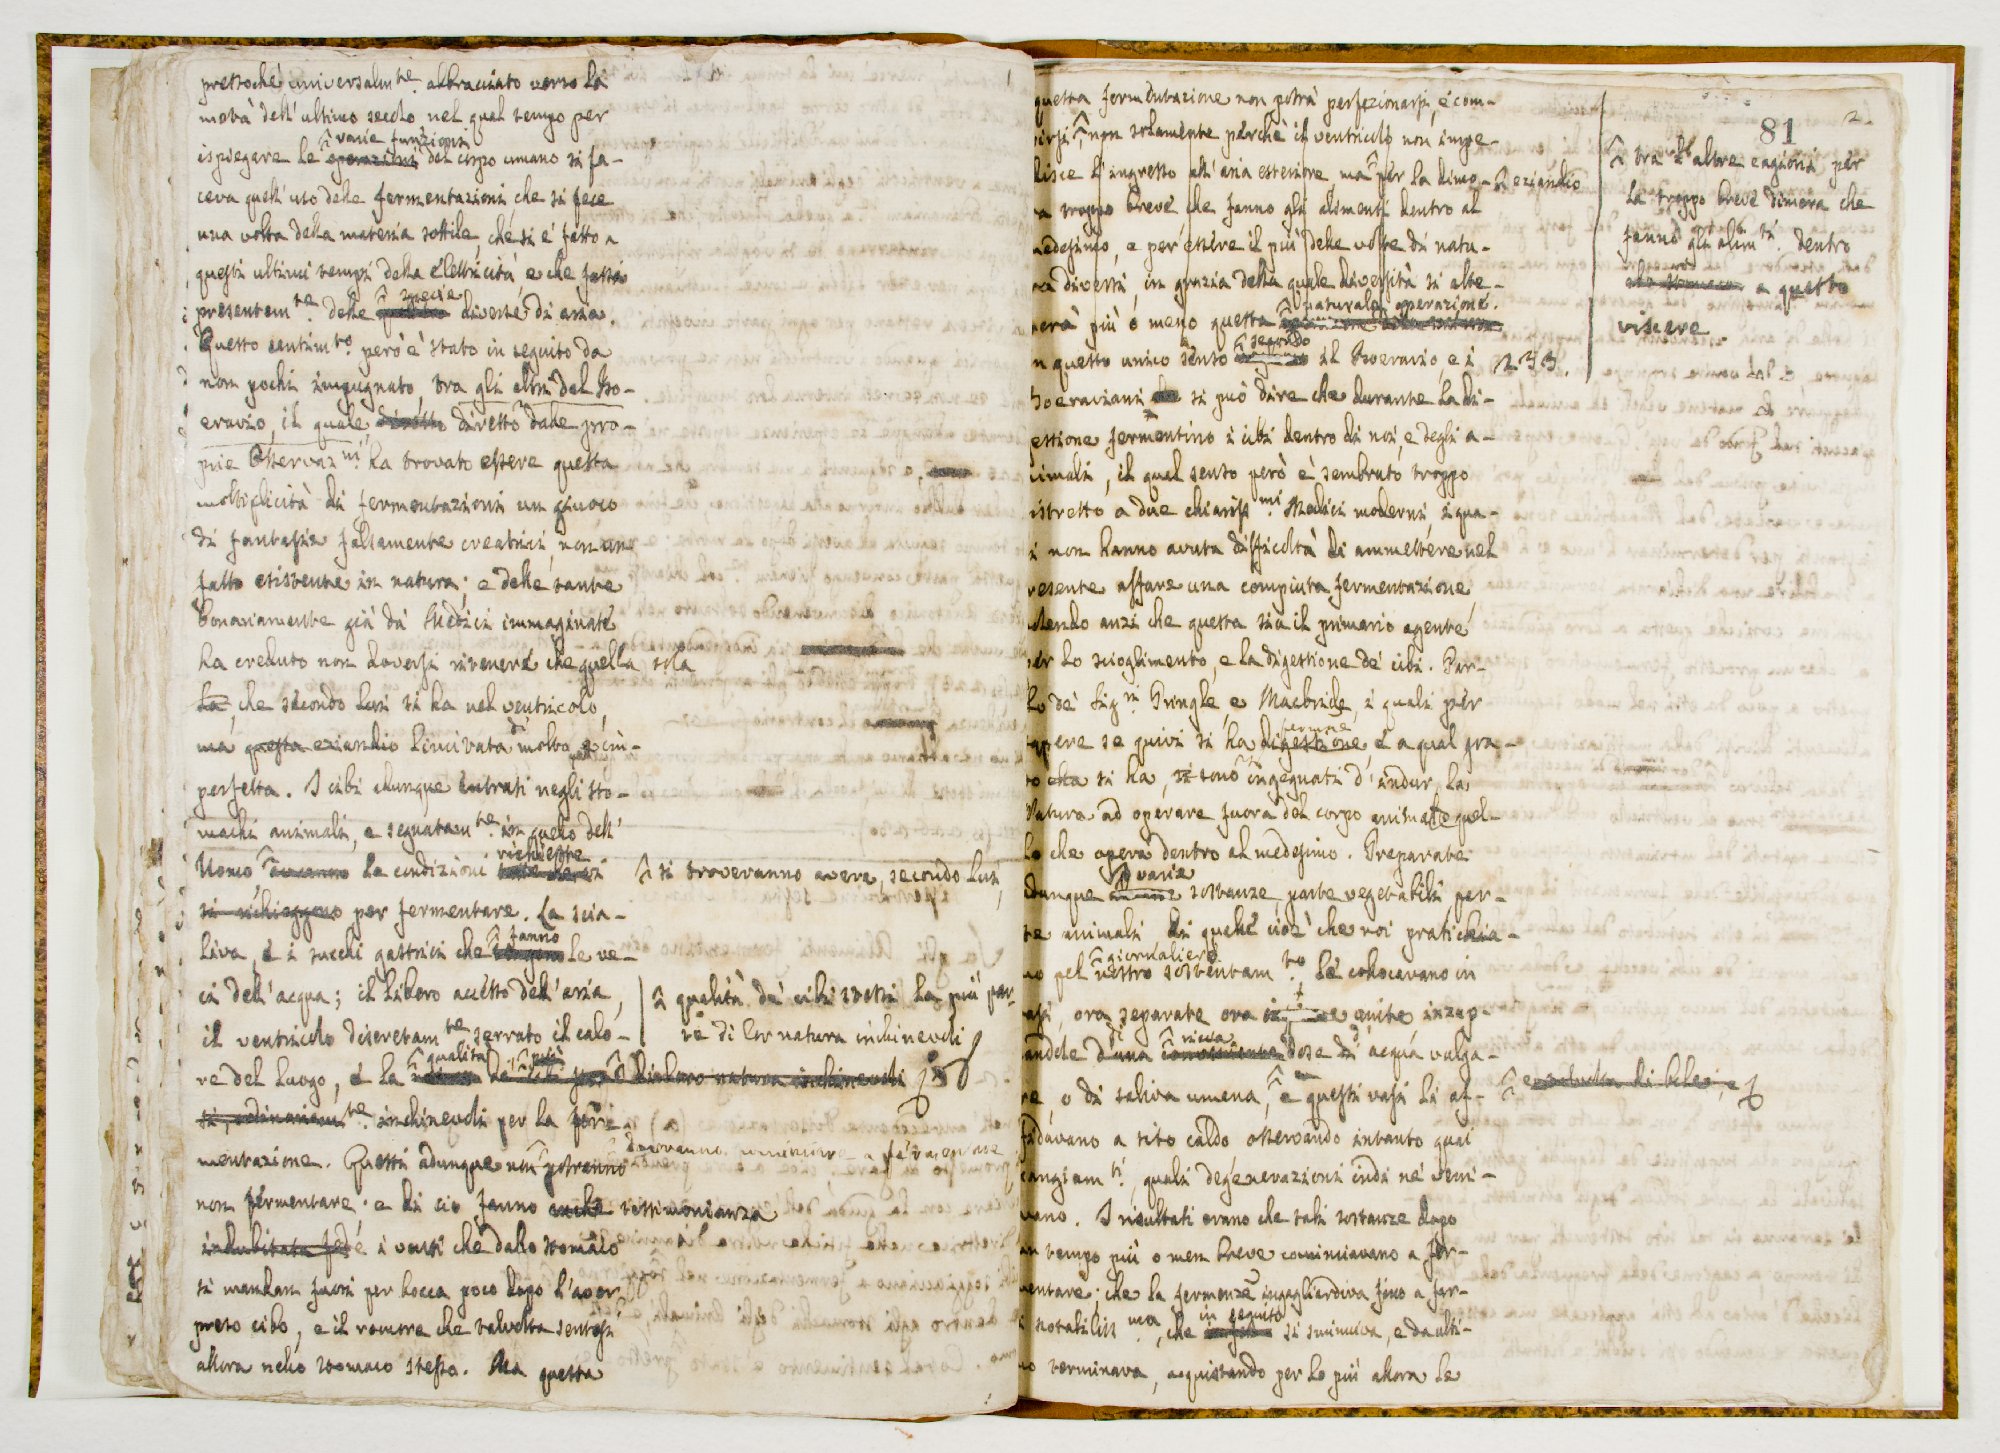 pressoché universalm.te abbracciato verso la
metà dell' ultimo secolo nel qual tempo per
varie funzioni
ispiegare le operazioni del corpo umano si fa-
ceva quell' uso delle fermentazioni, che si fece
una volta della materia sottile, che si è fatto a
questi ultimi tempi della elettricità, e che fassi
specie
presentem.te delle diverse di aria.
Questo sentim.to però è stato in seguito da
non pochi impugnato, tra gli altri dal Bo-
eravio, il quale diretto dalle pro-
prie Osservaz.ni ha trovato essere questa
moltiplicità di fermentazioni un giuoco
di fantasia falsamente creatrici, non un
fatto esistente in natura; e delle tante
bonariamente già da Medici immaginate
ha creduto non doversi ritenere che quella sola
la, che secondo lui si ha nel ventricolo,
ma questa eziandio limitata di molto e im-
perfetta. I cibi dunque entrati negli sto-
machi animali, e segnatam.te in quello dell'
richieste
Uomo le condizioni
^ si troveranno avere, secondo lui,
si richieggono per fermentare. La scia-
^ fanno
liva, e i succhi gastrici che tengono le ve-
ci dell' acqua; il libero accesso dell' aria,
^ qualità de' cibi stessi la più par-
il ventricolo discretam.te serrato il calo-
te di lor natura inchinevoli
^ qualità
re del luogo, e la di loro natura inchinevoli
si, ordinariam.te inchinevoli per la fer-
mentazione. Questi adunque non potranno
dovranno cominciare a fermentare
non fermentare: e di ciò fanno anche testimonianza
indubitata fede i venti che dallo stomaco
si mandan fuori per bocca poco dopo l' aver
preso cibo, e il romore che talvolta sentesi
allora nello stomaco stesso. Ma questa
81
2
questa fermentazione non potrà perfezionarsi, e com-
pirsi, non solamente perchè il ventricolo non impe-
disce l' ingresso all' aria esteriore ma per la dimo-
^ eziandio
ra troppo breve che fanno gli alimenti dentro al
medesimo, e per essere il più delle volte di natu-
ra diversi, in grazia della quale diversità si alte-
naturale operazione.
rerà più o meno questa
^ secondo
in questo unico senso il Boeravio, e i
Boeraviani si può dire che durante la di-
gestione fermentino i cibi dentro di noi, e degli a-
nimali, il qual senso però è sembrato troppo
ristretto a due chiariss.mi Medici moderni, i qua-
li non hanno avuta difficoltà di ammettere nel
presente affare una compiuta fermentazione,
volendo anzi che questa sia il primario agente
per lo scioglimento, e la digestione de' cibi. Par-
lo de' Sig.ri Pringle, e Macbride, i quali per
sapere se quivi si ha digestione, e a qual gra-
do si ha, si sono ingegnati d' indur la
Natura ad operare fuora del corpo animale quel-
lo che opera dentro al medesimo. Preparate
varie
adunque sostanze, parte vegetabili par-
te animali di quelle cioè che noi pratichia-
^ giornaliero
mo pel nostro sostentam.to, le collocavano in
vasi, ora separate ora unite, inzup-
pandole d' una dose d' acqua vulga-
re, o di saliva umana, e questi vasi li af-
^ e talvolta di bile, e
fidavano a sito caldo osservando intanto quai
cangiam.ti, quali degenerazioni indi ne veni-
vano. I risultati erano che tali sostanze dopo
un tempo più o men breve cominciavano a fer-
mentare; che la fermenz.e ingagliardiva fino a far-
in seguito
si notabiliss.ma, che si sminuiva, e da ulti-
mo terminava, acquistando per lo più allora le
^ tra le altre cagioni per
la troppo breve dimora che
fanno gli alim.ti dentro
a questo
viscere
233.